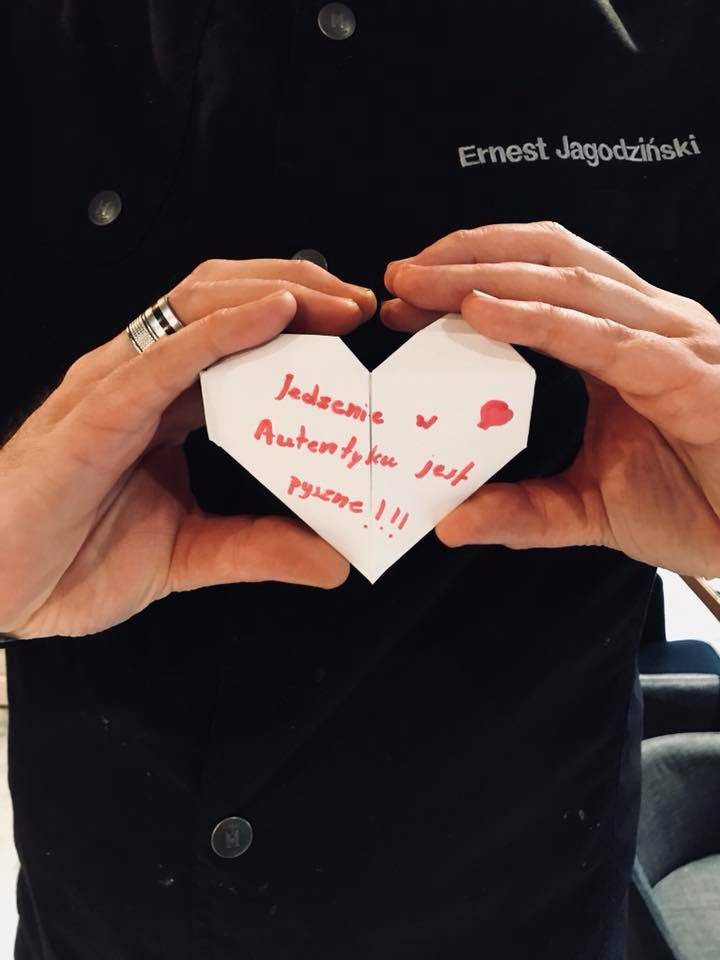 Ernest Jagodziński
Jedzenie w
Autentyku jest
pyszne!!!